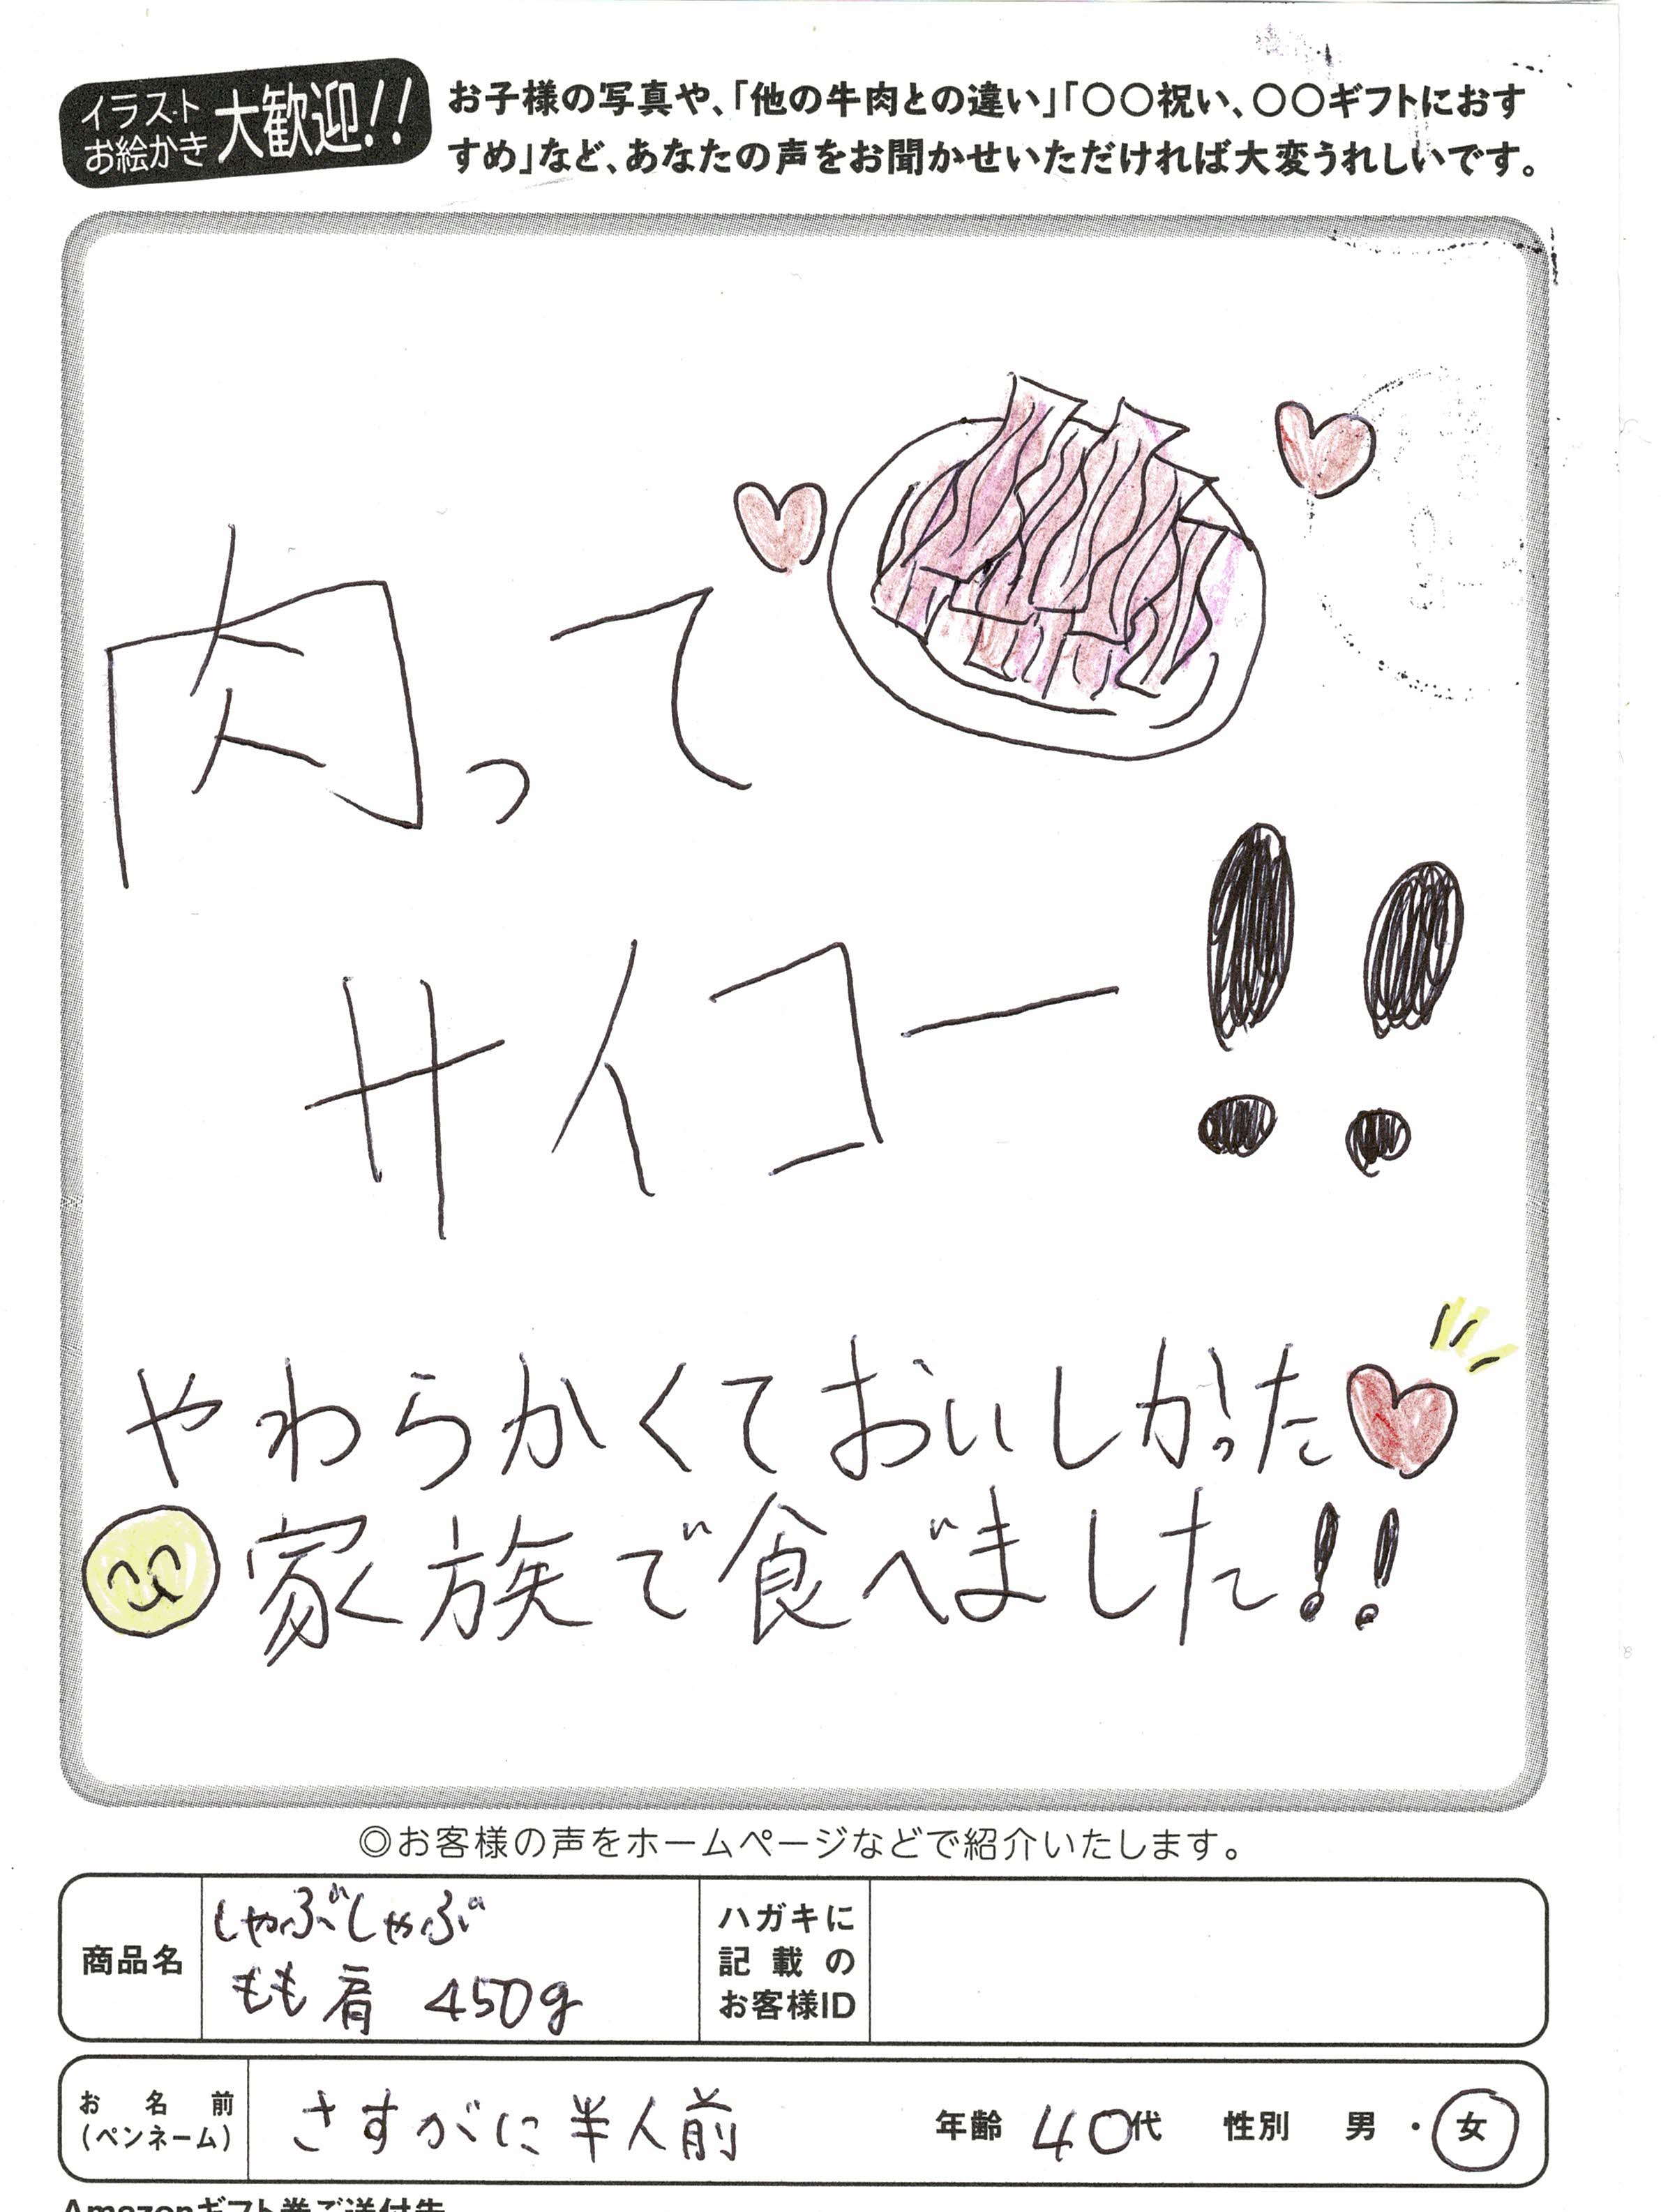 イラスト
お絵かき
大歓迎!!
お子様の写真や、「他の牛肉との違い」「○○祝い、○○ギフトにおす
すめ」など、あなたの声をお聞かせいただければ大変うれしいです。
肉って
サイコー!!
やわらかくておいしかった
家族で食べました!!
◎お客様の声をホームページなどで紹介いたします。
商品名
しゃぶしゃぶ
もも肩 450g
ハガキに
記載の
お客様ID
お名前
(ペンネーム)
さすがに半人前
年齢 40代 性別 男・女
Amazonギフト券ご送付先